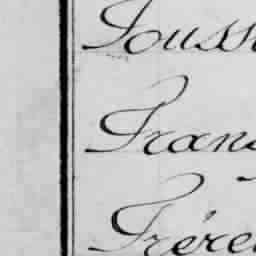 Jouss
Franç
Frére